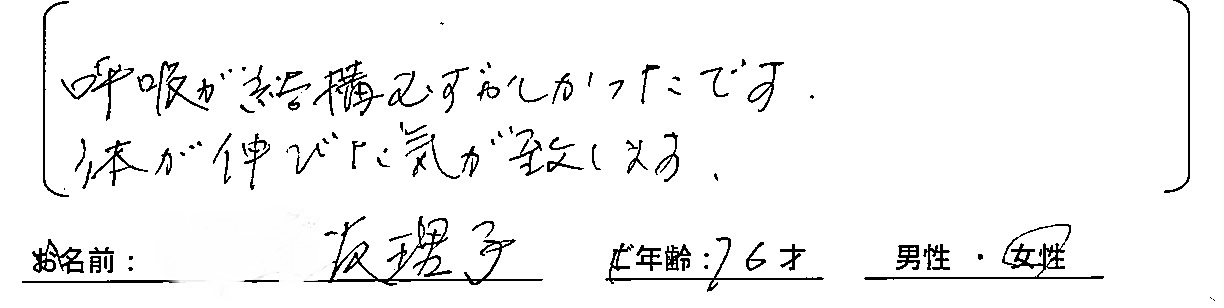 呼吸が結構むずかしかったです.
体が伸びた気が致します.
お名前： 友理子 ご年齢：76才 男性 ・ 女性